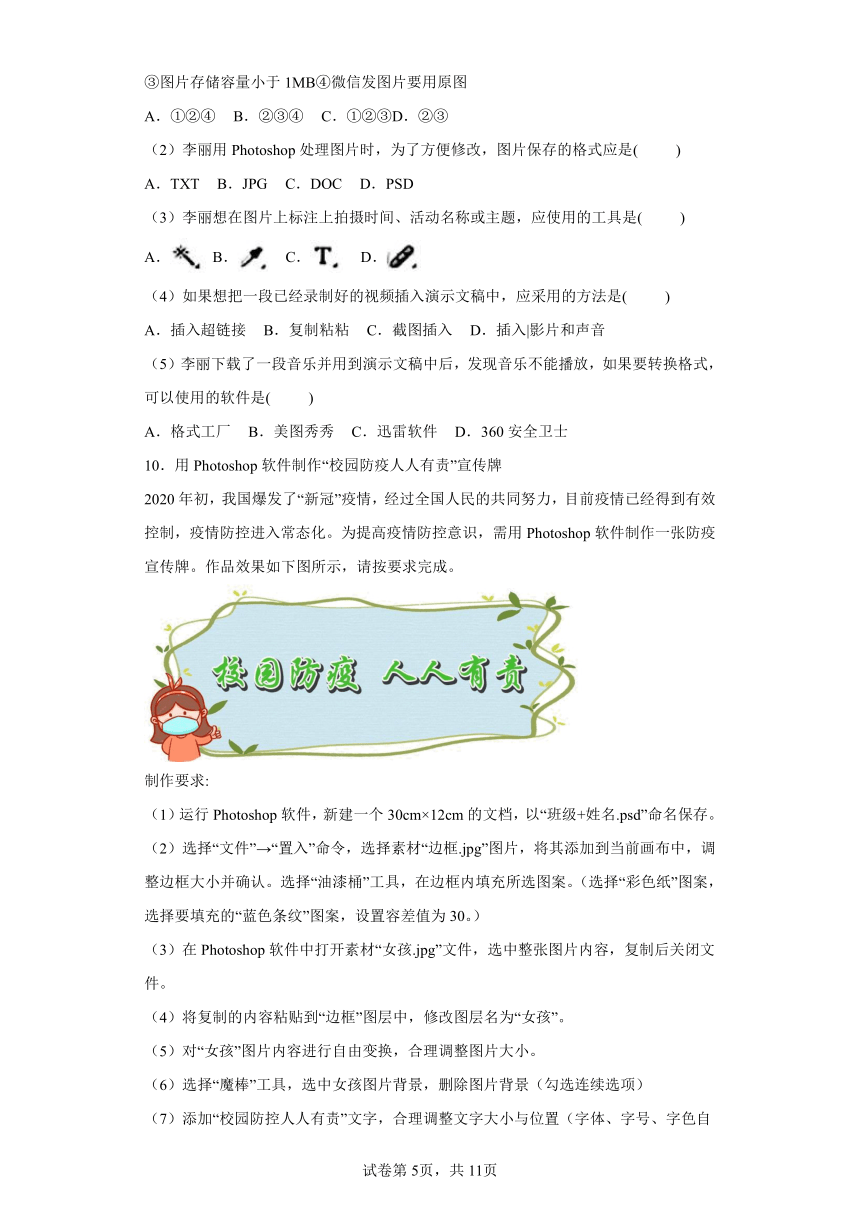 ③图片存储容量小于1MB④微信发图片要用原图
A．①②④ B．②③④ C．①②③D．②③
（2）李丽用Photoshop处理图片时，为了方便修改，图片保存的格式应是( )
A．TXT B．JPG C．DOC D．PSD
（3）李丽想在图片上标注上拍摄时间、活动名称或主题，应使用的工具是( )
A． B． C．T． D．
（4）如果想把一段已经录制好的视频插入演示文稿中，应采用的方法是( )
A．插入超链接 B．复制粘粘 C．截图插入 D．插入|影片和声音
（5）李丽下载了一段音乐并用到演示文稿中后，发现音乐不能播放，如果要转换格式，
可以使用的软件是( )
A．格式工厂 B．美图秀秀 C．迅雷软件 D．360安全卫士
10．用Photoshop软件制作“校园防疫人人有责”宣传牌
2020年初，我国爆发了“新冠”疫情，经过全国人民的共同努力，目前疫情已经得到有效
控制，疫情防控进入常态化。为提高疫情防控意识，需用Photoshop软件制作一张防疫
宣传牌。作品效果如下图所示，请按要求完成。
校园防疫 人人有责
制作要求:
（1）运行Photoshop软件，新建一个30cm×12cm的文档，以“班级+姓名.psd”命名保存。
（2）选择“文件”→“置入”命令，选择素材“边框.jpg”图片，将其添加到当前画布中，调
整边框大小并确认。选择“油漆桶”工具，在边框内填充所选图案。（选择“彩色纸”图案，
选择要填充的“蓝色条纹”图案，设置容差值为30。）
（3）在Photoshop软件中打开素材“女孩.jpg”文件，选中整张图片内容，复制后关闭文
件。
（4）将复制的内容粘贴到“边框”图层中，修改图层名为“女孩”。
（5）对“女孩”图片内容进行自由变换，合理调整图片大小。
（6）选择“魔棒”工具，选中女孩图片背景，删除图片背景（勾选连续选项）
（7）添加“校园防控人人有责”文字，合理调整文字大小与位置（字体、字号、字色自
试卷第5页，共11页